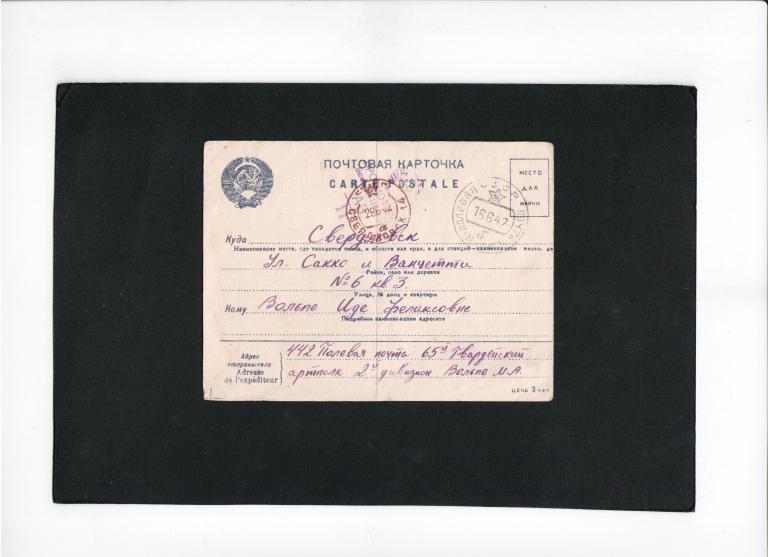 ПОЧТОВАЯ КАРТОЧКА
CARTE POSTALE
МЕСТО
ДЛЯ
МАРКИ
СВЕРДЛОВСК 14
26642
СССР
16642
Куда Свердловск
Наименование места, где находится почта, и области или края, а для станций—наименование желез. до
Ул. Сакко и Ванцетти
Район, село или деревня
№6 кв. 3.
Улица, № дома и квартиры
Кому Вольпе Иде Феликсовне
Подробное наименование адресата
Адрес
отправителя
Adresse
de l'expéditeur
442 Полевая почта 65й Гвардейский
артполк 2й дивизион Вольпе М.А.
ЦЕНА 3 коп.